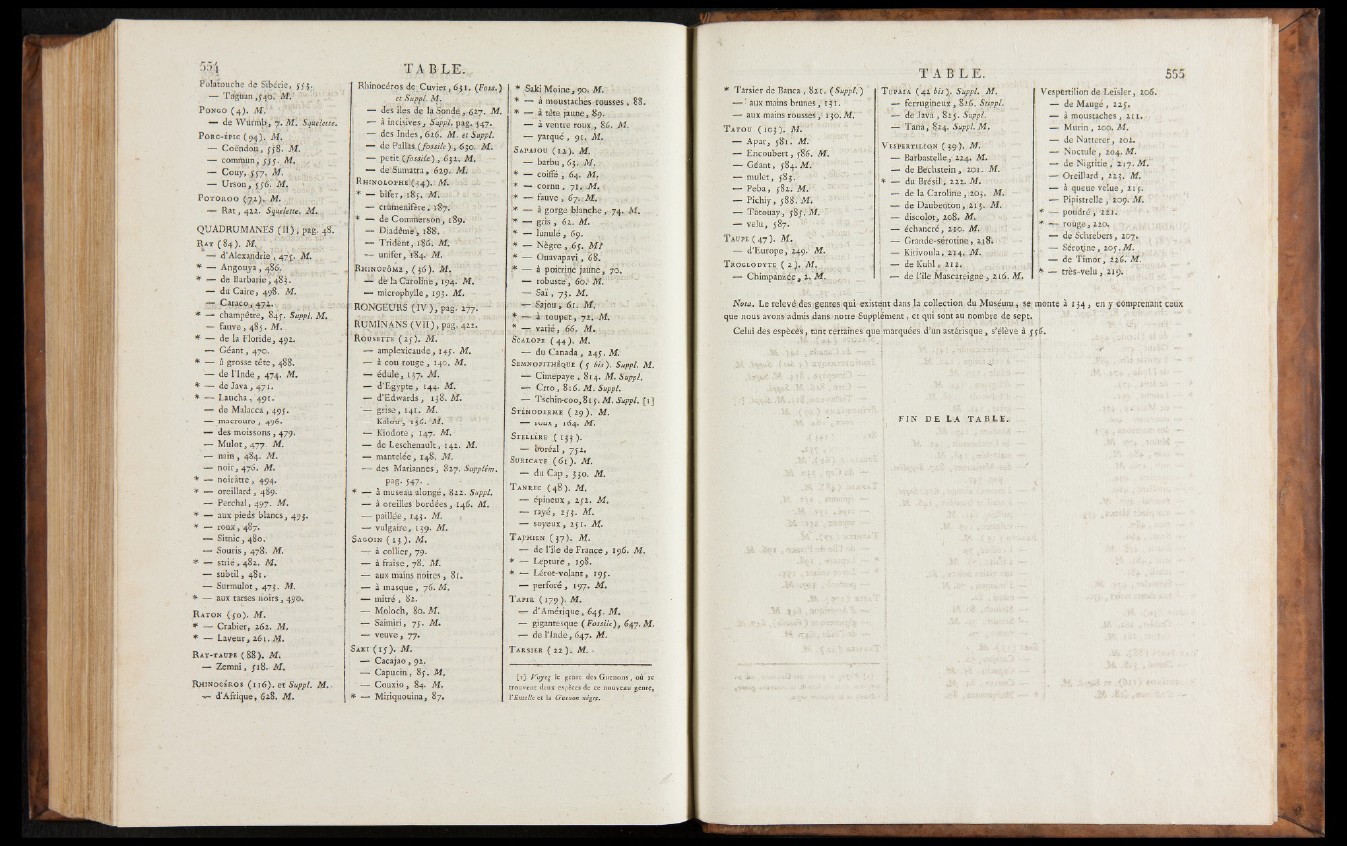 554
TABLE.
Polatouche de Sibérie, 553.
— Taguan, 540. M.
PONGO (4). M.
— de Wurmb, 7. M. Squelette.
PORC-ÉPIC (94). M.
— Coëndou, 558. M.
— commun, 555. M.
— Couy, 557. M.
— Urson, 556. M.
POTOROO (72). M.
— Rat, 422. Squelette. M.
QUADRUMANES (II), pag. 48.
RAT (84). M.
— d'Alexandrie, 475. M.
* — Angouya, 486.
* — de Barbarie, 483.
— du Caire, 498. M.
— Caraco, 472.
* — champêtre, 845. Suppl. M.
— fauve, 485. M.
* — de la Floride, 492.
— Géant, 470.
* — à grosse tête, 488.
— de l'Inde, 474. M.
* — de Java, 471.
* — Laucha, 491.
— de Malacca, 495.
— macroure, 496.
— des moissons, 479.
— Mulot, 477. M.
— nain, 484. M.
— noir, 476. M.
* — noirâtre, 494.
* — oreillard, 489.
— Perchal, 497. M.
* — aux pieds blancs, 493.
* — roux, 487.
— Sitnic, 480.
— Souris, 478. M.
* — strié, 482. M.
— subtil, 481.
— Surmulot, 473. M.
* — aux tarses noirs, 490.
RATON (50). M.
* — Crabier, 262. M.
* — Laveur, 261. M.
RAT-TAUPE (88). M.
— Zemni, 518. M.
RHINOCÉROS (116). et Suppl. M.
— d'Afrique, 628. M.
Rhinocéros de Cuvier, 631. (Foss.)
et Suppl. M.
— des îles de la Sonde, 627. M.
— à incisives, Suppl. pag. 547.
— des Indes, 626. M. et Suppl.
— de Pallas (fossile), 630. M.
— petit (fossile), 632. M.
— de Sumatra, 629. M.
RHINOLOPHE (34). M.
* — bifer, 185. M.
— cruménifère, 187.
* — de Commerson, 189.
— Diadême, 188.
— Trident, 186. M.
— unifer, 184. M.
RHINOPÔME, (36). M.
— de la Caroline, 194. M.
— microphylle, 193. M.
RONGEURS (IV), pag. 277.
RUMINANS (VII), pag. 422.
ROUSETTE (25). M.
— amplexicaude, 145. M.
— à cou rouge, 140. M.
— édule, 137. M.
— d'Egypte, 144. M.
— d'Edwards, 138. M.
— grise, 141. M.
— Kalou, 136. M.
— Kiodote, 147. M.
— de Leschenault, 142. M.
— mantelée, 148. M.
— des Mariannes, 827. Supplém.
pag. 547.
* — à museau alongé, 822. Suppl.
— à oreilles bordées, 146. M.
— paillée, 143. M.
— vulgaire, 139. M.
SAGOIN (13). M.
— à collier, 79.
— à fraise, 78. M.
— aux mains noires, 81.
— à masque, 76. M.
— mitré, 82.
— Moloch, 80. M.
— Saïmiri, 75. M.
— veuve, 77.
SAKI (15). M.
— Cacajao, 92.
— Capucin, 85. M.
— Couxio, 84. M.
* — Miriquouina, 87.
* Saki Moine, 90. M.
* — à moustaches rousses, 88.
* — à tête jaune, 89.
— à ventre roux, 86. M.
— yarqué, 91. M.
SAPAJOU (12). M.
— barbu, 63. M.
* — coiffé, 64. M.
* — cornu, 71. M.
* — fauve, 67. M.
* — à gorge blanche, 74. M.
* — gris, 62. M.
* — lunulé, 69.
* — Nègre, 65. M?
* — Ouavapavi, 68.
* — à poitrine jaune, 70.
— robuste, 60. M.
— Saï, 73. M.
— Sajou, 61. M.
* — à toupet, 72. M.
* — varié, 66. M.
SCALOPE (44). M.
— du Canada, 245. M.
SEMNOPITHÈQUE (5 bis). Suppl. M.
— Cimepaye, 814. M. Suppl.
— Croo, 816. M. Suppl.
— Tschin-coo, 815. M. Suppl. [1]
STÉNODERME (29). M.
— roux, 164. M.
STELLÈRE (133).
— boréal, 752.
SURICATE (61). M.
— du Cap, 330. M.
TANREC (48). M.
— épineux, 252. M.
— rayé, 253. M.
— soyeux, 251. M.
TAPHIEN (37). M.
— de l'île de France, 196. M.
* — Lepture, 198.
* — Lérot-volant, 195.
— perforé, 197. M.
TAPIR (179). M.
— d'Amérique, 645. M.
— gigantesque (Fossile), 647. M.
— de l'Inde, 647. M.
TARSIER (22). M.
[1] Voyez le genre des Guenons, où se
trouvent deux espèces de ce nouveau genre,
l'Entelle et la Guenon nègre.
TABLE.
555
* Tarsier de Banca, 821. (Suppl.)
— aux mains brunes, 131.
— aux mains rousses, 130. M.
TATOU (103). M.
— Apar, 581. M.
— Encoubert, 586. M.
— Géant, 584. M.
— mulet, 583.
— Peba, 582. M.
— Pichiy, 588. M.
— Tatouay, 585. M.
— velu, 587.
TAUPE (47). M.
— d'Europe, 249. M.
TROGLODYTE (2). M.
— Chimpanzée, 2. M.
TUPAIA (42 bis). Suppl. M.
— ferrugineux, 826. Suppl.
— de Java, 825. Suppl.
— Tana, 824. Suppl. M.
VESPERTILION (39). M.
— Barbastelle, 224. M.
— de Bechstein, 201. M.
* — du Brésil, 222. M.
— de la Caroline, 203. M.
— de Daubenton, 213. M.
— discolor, 208. M.
— échancré, 210. M.
— Grande-sérotine, 218.
— Kirivoula, 214. M.
— de Kuhl, 212.
— de l'île Mascareigne, 216. M.
Vespertilion de Leisler, 206.
— de Maugé, 225.
— à moustaches, 211.
— Murin, 200. M.
— de Natterer, 202.
— Noctule, 204. M.
— de Nigritie, 217. M.
— Oreillard, 223. M.
— à queue velue, 215.
— Pipistrelle, 209. M.
* — poudré, 221.
* — rouge, 220.
— de Schrebers, 207.
— Sérotine, 205. M.
— de Timor, 226. M.
* — très-velu, 219.
Nota. Le relevé des genres qui existent dans la collection du Muséum, se monte à 134, en y comprenant ceux
que nous avons admis dans notre Supplément, et qui sont au nombre de sept.
Celui des espèces, tant certaines que marquées d'un astérisque, s'élève à 556.
FIN DE LA TABLE.